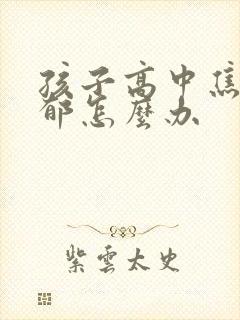 孩子高中焦
郁怎麼办
紫雲太史